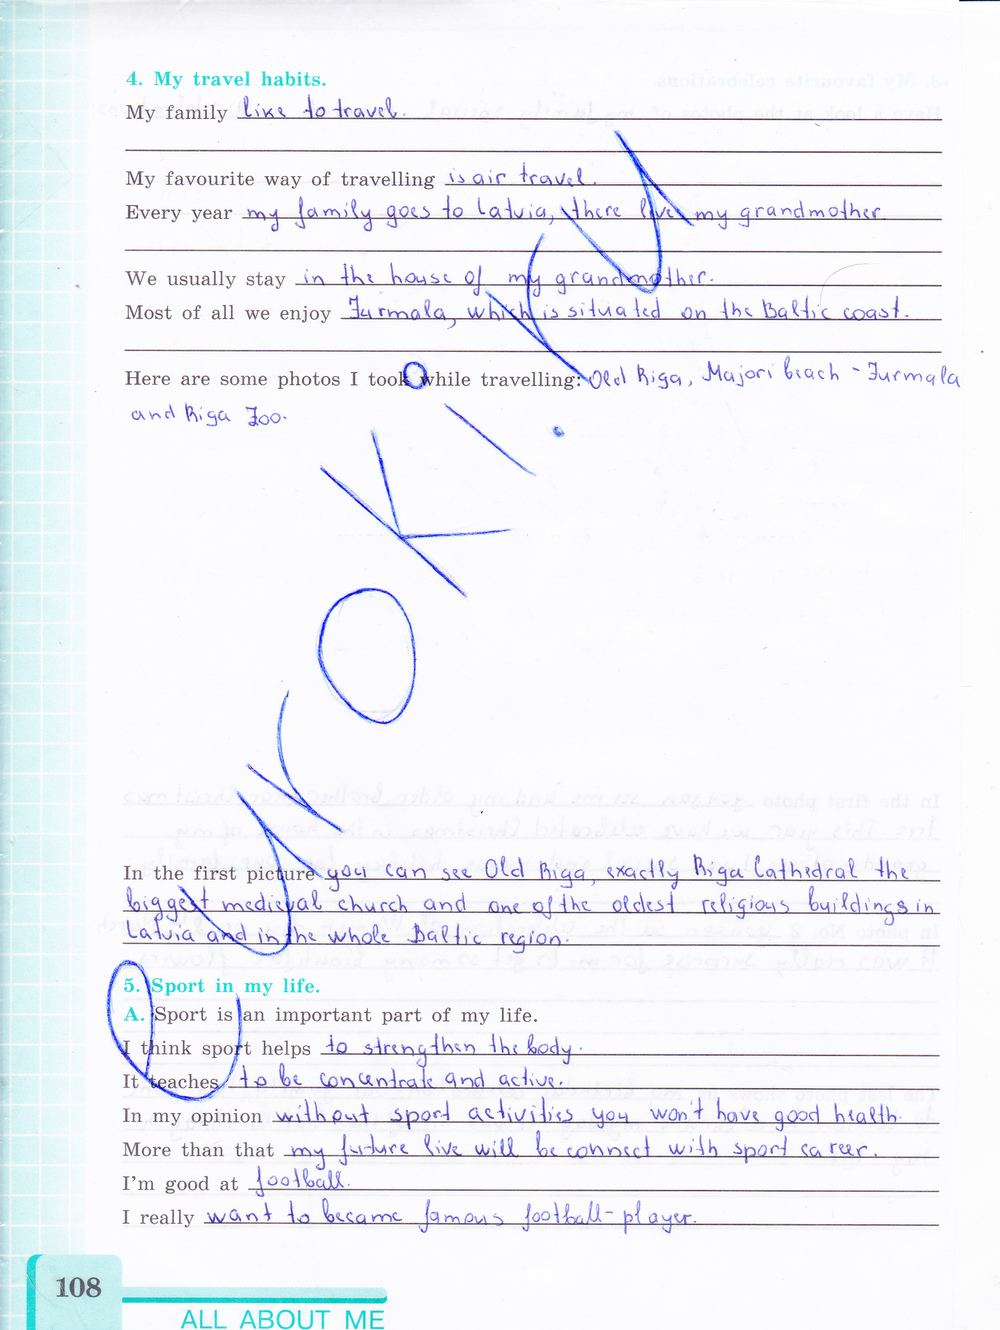 4. My travel habits.
My family like to travel.
My favourite way of travelling is air travel.
Every year my family goes to Latvia, there live my grandmother
We usually stay in the house of my grandmother.
Most of all we enjoy Jurmala, which is situated on the Baltic coast.
Here are some photos I took while travelling: Old Riga, Majori beach - Jurmala
and Riga Zoo.
In the first picture you can see Old Riga, exactly Riga Cathedral the
biggest medieval church and one of the oldest religious buildings in
Latvia and in the whole Baltic region.
5. Sport in my life.
A. Sport is an important part of my life.
I think sport helps to strengthen the body.
It teaches to be concentrate and active.
In my opinion without sport activities you won't have good health.
More than that my future live will be connect with sport career.
I'm good at football.
I really want to became famous football-player.
108
ALL ABOUT ME